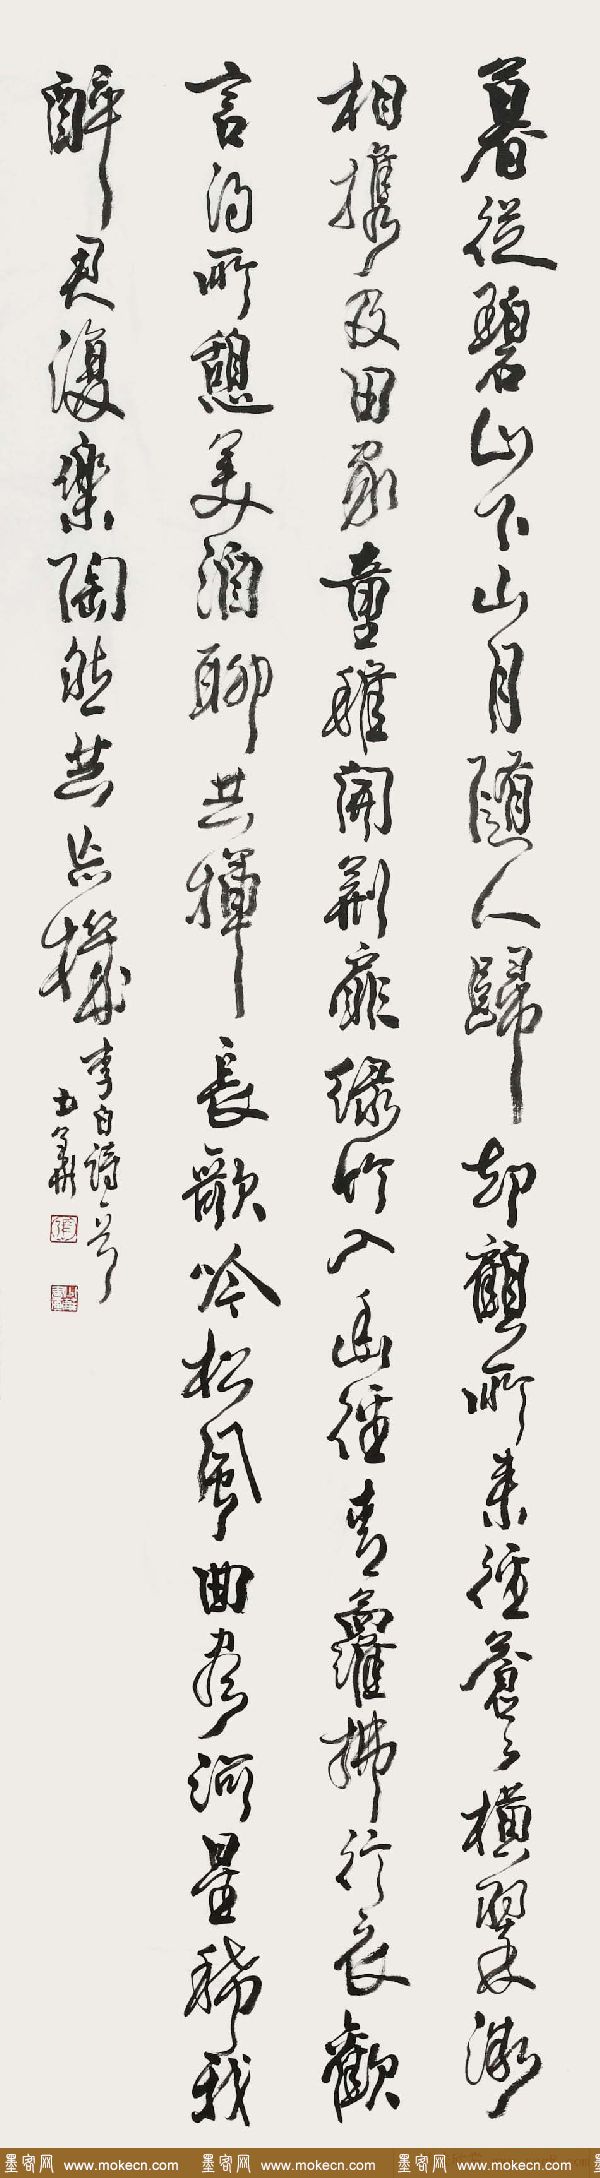 暮從碧山下山月随人歸却顧所来徑蒼々橫翠微
相携及田家童稚開荆扉緑竹入幽徑青蘿拂行衣歡
言得所憩美酒聊共揮長歌吟松風曲盡河星稀我
醉君復樂陶然共忘機
李白詩一首
墨客网 www.mokecn.com 墨客网 www.mokecn.com 墨客网 www.mokecn.com